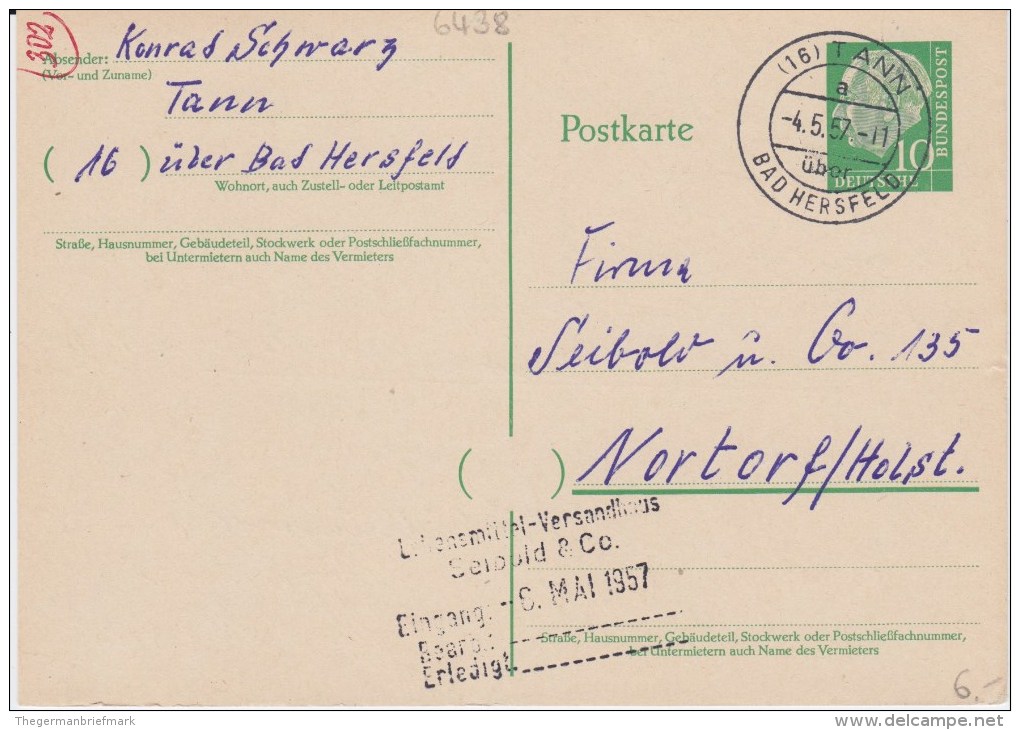 6438
202
Absender: Konrad Schwarz
(Vor- und Zuname)
Tann
( 16 ) über Bad Hersfeld
Wohnort, auch Zustell- oder Leitpostamt
Straße, Hausnummer, Gebäudeteil, Stockwerk oder Postschließfachnummer,
bei Untermietern auch Name des Vermieters
Postkarte
(16) TANN
a
-4.5.57.-11
über
BAD HERSFELD
10
DEUTSCHE
BUNDESPOST
Firma
Seibold u. Co. 135
( ) Nortorf/Holst.
Lebensmittel-Versandhaus
Seibold & Co.
Eingang: -6. MAI 1957
Bearb.:
Erledigt
Straße, Hausnummer, Gebäudeteil, Stockwerk oder Postschließfachnummer,
bei Untermietern auch Name des Vermieters
6.-
Thegermanbriefmark
delcampe.net